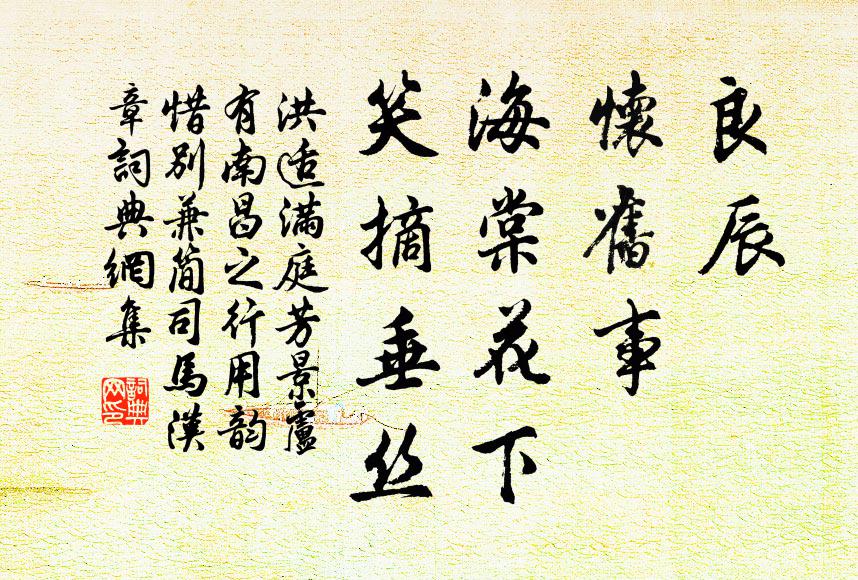 良辰
懷舊事
海棠花下
笑摘垂丝
洪适滿庭芳景盧
有南昌之行用韵
惜别兼简司馬漢
章詞典網集
詞典網印